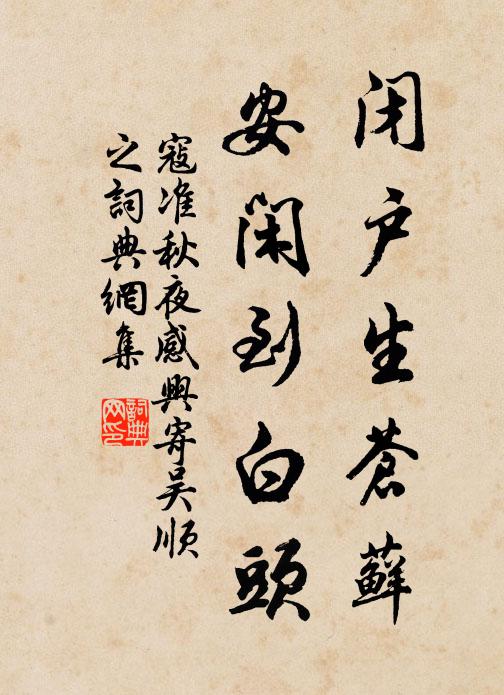 闭户生苍藓
安闲到白頭
寇准秋夜感興寄吴顺
之詞典網集
詞典
网印